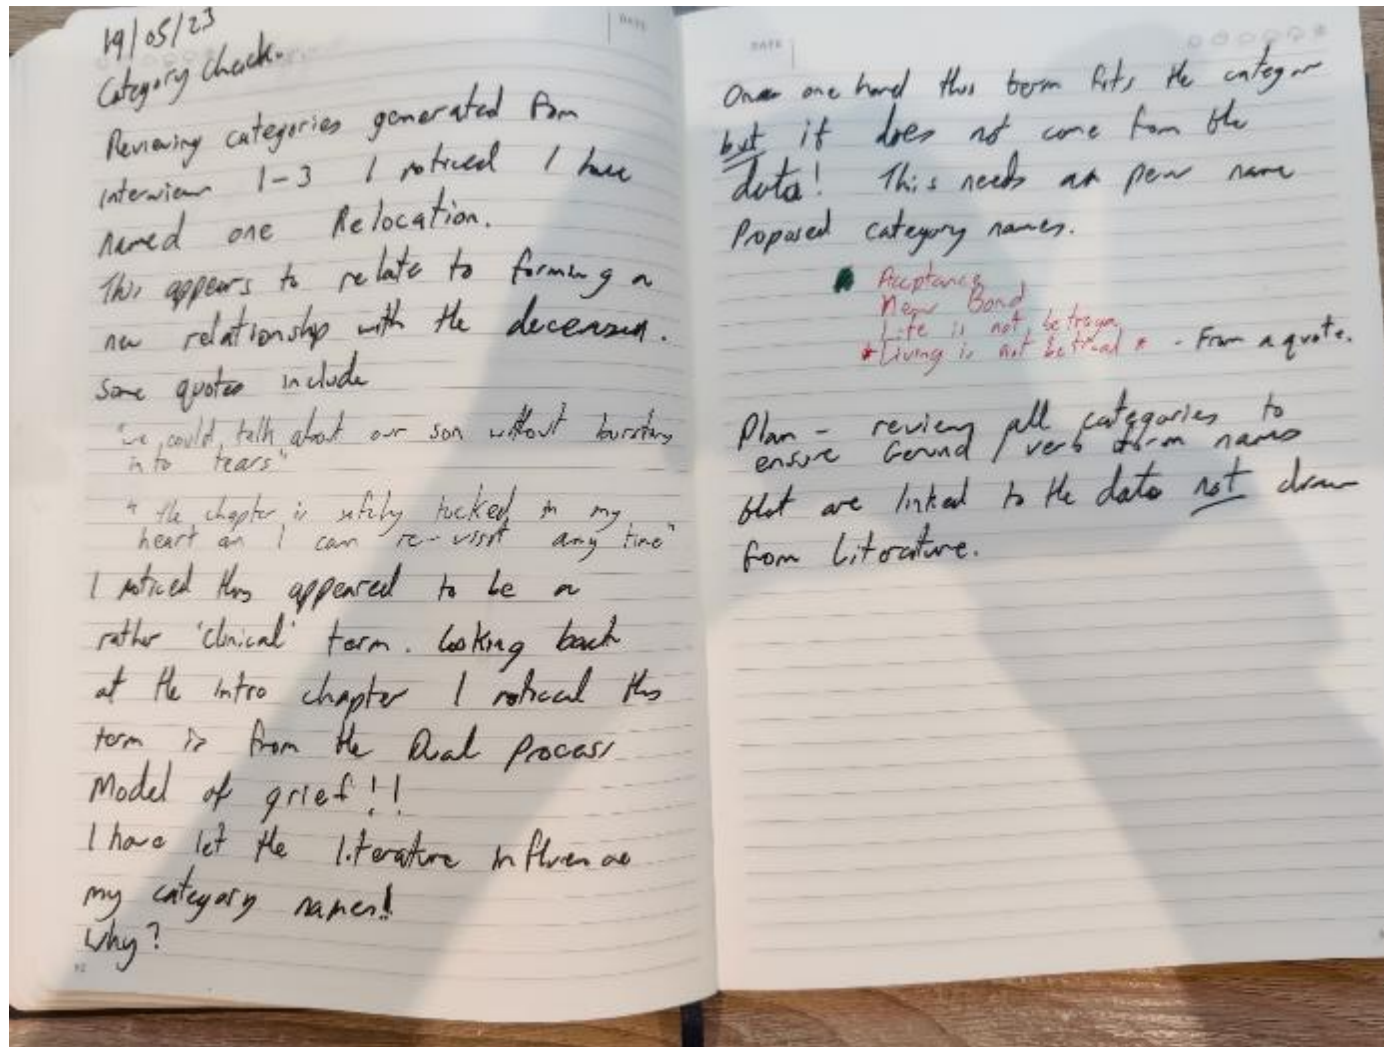 19/05/23
Category Check.
Reviewing categories generated from
interviews 1-3 I noticed I have
named one Relocation.
This appears to relate to forming a
new relationship with the deceased.
Some quotes include
"we could talk about our son without bursting
into tears"
"the chapter is safely tucked in my
heart an I can re-visit any time"
I noticed this appeared to be a
rather 'clinical' term. Looking back
at the intro chapter I noticed this
term is from the Dual Process
Model of grief!!
I have let the literature influence
my category names!
Why?
92
DATE
DATE
On one hand this term fits the categor
but it does not come from the
data! This needs a new name
Proposed category names.
Acceptance
New Bond
Life is not betrayal
*Living is not betrayal* - From a quote.
Plan - review all categories to
ensure Gerund / verb form names
that are linked to the data not drawn
from Literature.